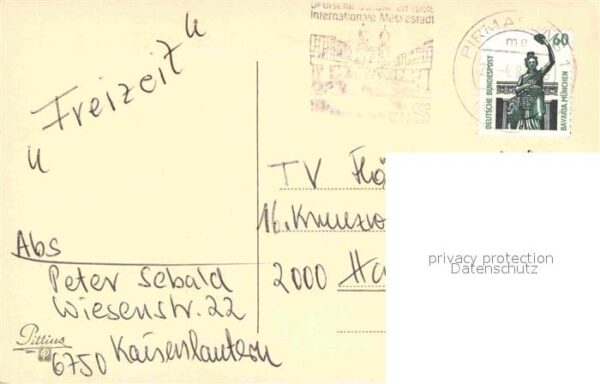 Deutsche Schuhmetropole
Internationale Messestadt
PIRMASENS 1
me
60
DEUTSCHE BUNDESPOST
BAVARIA MÜNCHEN
"Freizeit"
TV
16.
2000 Ha
privacy protection
Datenschutz
Abs
Peter Sebald
Wiesenstr. 22
6750 Kaiserslautern
Pittius